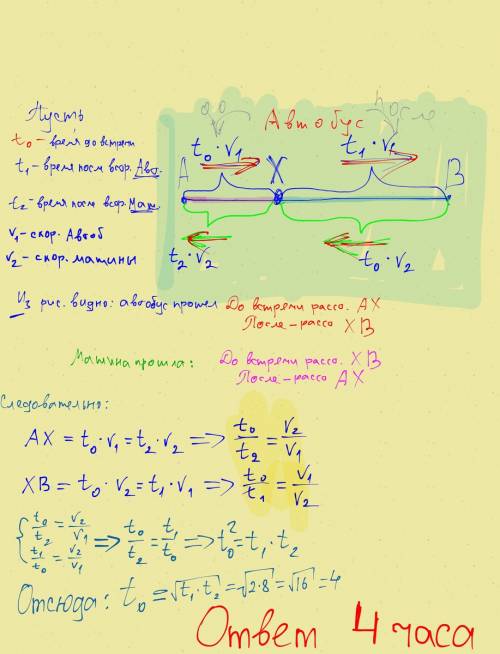 Пусть
t₀ - время до встречи
t₁ - время после встр. Авт.
t₂ - время после встр. Маш.
v₁ - скор. Автоб
v₂ - скор. машины
Автобус
до
после
t₀ · v₁
t₁ · v₁
A
X
B
t₂ · v₂
t₀ · v₂
Из рис. видно: автобус прошел До встречи рассо. AX
После - рассо XB
Машина прошла: До встречи рассо. XB
После - рассо AX
Следовательно:
AX = t₀ · v₁ = t₂ · v₂ => t₀/t₂ = v₂/v₁
XB = t₀ · v₂ = t₁ · v₁ => t₀/t₁ = v₁/v₂
{ t₀/t₂ = v₂/v₁ t₁/t₀ = v₂/v₁ => t₀/t₂ = t₁/t₀ => t₀² = t₁ · t₂
Отсюда: t₀ = √t₁ · t₂ = √2·8 = √16 = 4
Ответ 4 часа